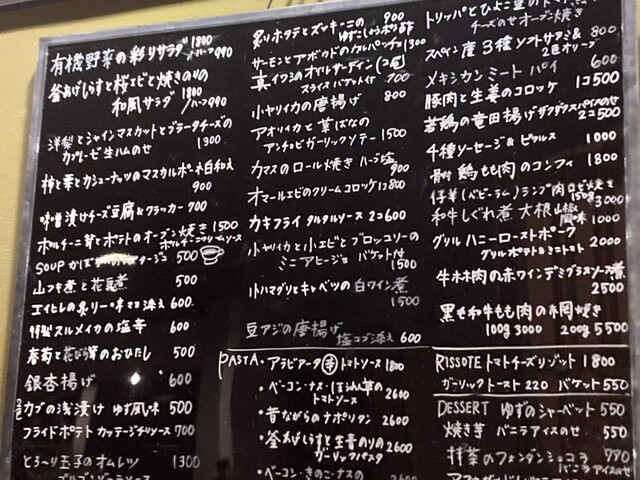 有機野菜の彩りサラダ 1800
ハーフ990
釜あげしらすと桜エビと焼きのりの
和風サラダ 1800
ハーフ990
洋梨とシャインマスカットとブラータチーズの
カプレーゼ生ハムのせ 1300
柿と栗とカシューナッツのマスカルポーネ白和え
900
味噌漬けチーズ豆腐&クラッカー 700
ポルチーニ茸とポテトのオーブン焼き 1500
ポルチーニクリームソース
SOUP かぼちゃのポタージュ 500
山フキ煮と花豆煮 500
エイヒレの炙り一味マヨ添え 600
特製スルメイカの塩辛 600
春菊と花びら茸のおひたし 500
銀杏揚げ 600
カブの浅漬け ゆず風味 500
フライドポテト カッテージチリソース 700
とろ〜り玉子のオムレツ 1300
炙りホタテとズッキーニの 900
ゆずこしょうポン酢
サーモンとアボカドのカルパッチョ 1300
真イワシのオイルサーディン(2尾)
スライスバケット付 700
小ヤリイカの唐揚げ 800
アオリイカと葉ばなの
アンチョビガーリックソテー 1500
カマスのロール焼き ハーブ塩
900
オマールエビのクリームコロッケ 1800
カキフライ タルタルソース 2コ600
小ヤリイカと小エビとブロッコリーの
ミニアヒージョ バケット付
1500
ハマグリとキャベツの白ワイン煮
1500
豆アジの唐揚げ
塩コブ添え 600
PASTA・アラビアータ 辛 トマトソース 1800
・ベーコン・ナス・ほうれん草の
トマトソース 2600
・昔ながらのナポリタン 2600
・釜あげしらすと生青のりの
ガーリックパスタ 2600
・ベーコン・きのこ・ナスの
トリッパとひよこ豆のトマト
チーズのせオーブン焼き
スペイン産3種ソフトサラミ&
2色オリーブ 800
メキシカンミートパイ 600
豚肉と生姜のコロッケ 1コ500
若鶏の竜田揚げ
2コ500
4種ソーセージ&ピクルス 1000
骨付 鶏もも肉のコンフィ 1800
仔羊(ベビーラム)ランプ肉ロゼ焼き
150g 3000
和牛しぐれ煮 大根 山椒
風味 1000
グリルハニーローストポーク
グリルポテト&ミニトマト 2000
牛ホホ肉の赤ワインデミグラスソース煮
2500
黒毛和牛もも肉の網焼き
100g 3000 200g 5500
RISSOTE トマトチーズリゾット 1800
ガーリックトースト 220 バケット 550
DESSERT ゆずのシャーベット 550
焼き芋 バニラアイスのせ 550
抹茶のフォンダンショコラ 990
バニラアイスのせ